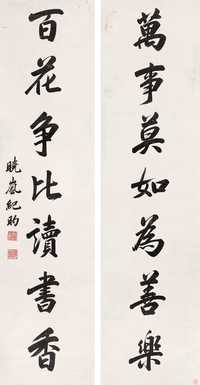 萬事莫如為善樂
百花争比讀書香
曉嵐紀昀